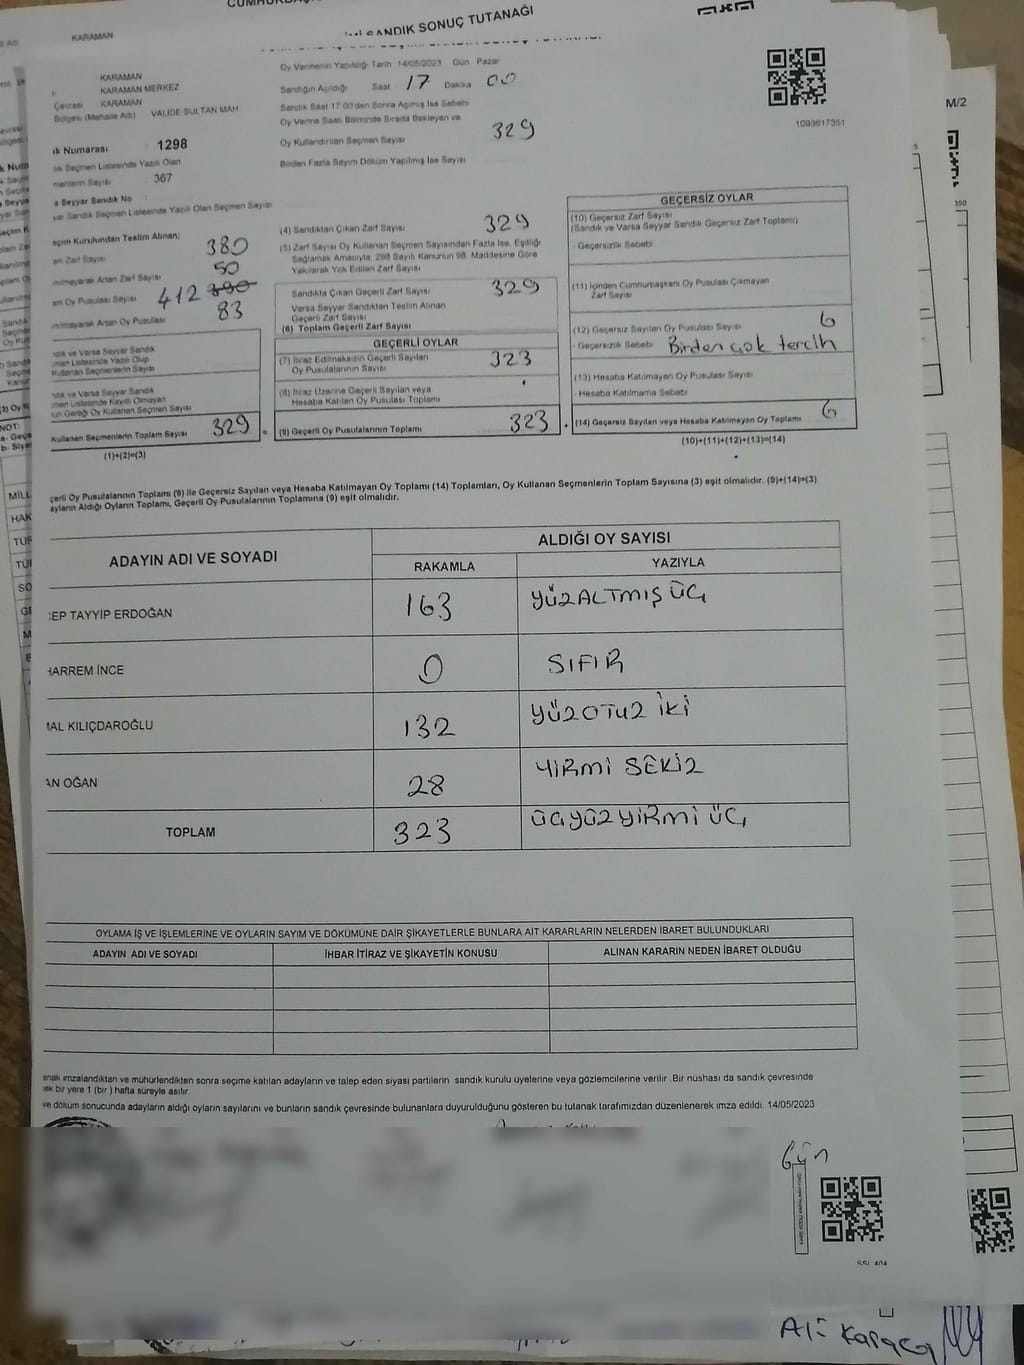 SANDIK SONUÇ TUTANAĞI
KARAMAN
M/2
KARAMAN
KARAMAN MERKEZ
Çevresi : KARAMAN
Bölgesi (Mahalle Adı) VALİDE SULTAN MAH
Numarası : 1298
Seçmen Listesinde Yazılı Olan
Sayısı : 367
Seyyar Sandık No
Sandık Listesinde Yazılı Olan Seçmen Sayısı
Oy Vermenin Yapıldığı Tarih 14/05/2023 Gün Pazar
Sandığın Açıldığı Saat 17 Dakika 00
Sandık Saat 17:00'den Sonra Açılmış İse Sebebi
Oy Verme Saati Bitiminde Sırada Bekleyen ve
Oy Kullandırılan Seçmen Sayısı 329
Birden Fazla Sayım Döküm Yapılmış İse Sayısı
1093617351
Kurulundan Teslim Alınan;
Zarf Sayısı 380
Artan Zarf Sayısı 50
Oy Pusulası Sayısı 412 390
Artan Oy Pusulası 83
ve Varsa Seyyar Sandık
Listesinde Yazılı Olup
Kullanan Seçmenlerin Sayısı
ve Varsa Seyyar Sandık
Listesinde Kayıtlı Olmayan
Gereği Oy Kullanan Seçmen Sayısı
Kullanan Seçmenlerin Toplam Sayısı 329
(1)+(2)=(3)
(4) Sandıktan Çıkan Zarf Sayısı 329
(5) Zarf Sayısı Oy Kullanan Seçmen Sayısından Fazla İse, Eşitliği
Sağlamak Amacıyla; 298 Sayılı Kanunun 98. Maddesine Göre
Yakılarak Yok Edilen Zarf Sayısı
Sandıkta Çıkan Geçerli Zarf Sayısı 329
Varsa Seyyar Sandıktan Teslim Alınan
Geçerli Zarf Sayısı
(6) Toplam Geçerli Zarf Sayısı
GEÇERLİ OYLAR
(7) İtiraz Edilmeksizin Geçerli Sayılan
Oy Pusulalarının Sayısı 323
(8) İtiraz Üzerine Geçerli Sayılan veya
Hesaba Katılan Oy Pusulası Toplamı
(9) Geçerli Oy Pusulalarının Toplamı 323
GEÇERSİZ OYLAR
(10) Geçersiz Zarf Sayısı
(Sandık ve Varsa Seyyar Sandık Geçersiz Zarf Toplamı)
- Geçersizlik Sebebi
(11) İçinden Cumhurbaşkanı Oy Pusulası Çıkmayan
Zarf Sayısı
(12) Geçersiz Sayılan Oy Pusulası Sayısı 6
- Geçersizlik Sebebi Birden çok tercih
(13) Hesaba Katılmayan Oy Pusulası Sayısı
- Hesaba Katılmama Sebebi
(14) Geçersiz Sayılan veya Hesaba Katılmayan Oy Toplamı 6
(10)+(11)+(12)+(13)=(14)
Oy Pusulalarının Toplamı (9) ile Geçersiz Sayılan veya Hesaba Katılmayan Oy Toplamı (14) Toplamları, Oy Kullanan Seçmenlerin Toplam Sayısına (3) eşit olmalıdır. (9)+(14)=(3)
Aldığı Oyların Toplamı, Geçerli Oy Pusulalarının Toplamına (9) eşit olmalıdır.
ADAYIN ADI VE SOYADI
ALDIĞI OY SAYISI
RAKAMLA YAZIYLA
CEP TAYYİP ERDOĞAN 163 YÜZALTMIŞ ÜÇ
HARREM İNCE 0 SIFIR
MAL KILIÇDAROĞLU 132 YÜZOTUZ İKİ
AN OĞAN 28 YİRMİ SEKİZ
TOPLAM 323 ÜÇYÜZYİRMİ ÜÇ
OYLAMA İŞ VE İŞLEMLERİNE VE OYLARIN SAYIM VE DÖKÜMÜNE DAİR ŞİKAYETLERLE BUNLARA AİT KARARLARIN NELERDEN İBARET BULUNDUKLARI
ADAYIN ADI VE SOYADI İHBAR İTİRAZ VE ŞİKAYETİN KONUSU ALINAN KARARIN NEDEN İBARET OLDUĞU
imzalandıktan ve mühürlendikten sonra seçime katılan adayların ve talep eden siyasi partilerin sandık kurulu üyelerine veya gözlemcilerine verilir. Bir nüshası da sandık çevresinde
bir yere 1 (bir) hafta süreyle asılır.
ve döküm sonucunda adayların aldığı oyların sayılarını ve bunların sandık çevresinde bulunanlara duyurulduğunu gösteren bu tutanak tarafımızdan düzenlenerek imza edildi. 14/05/2023
Ali Karaca